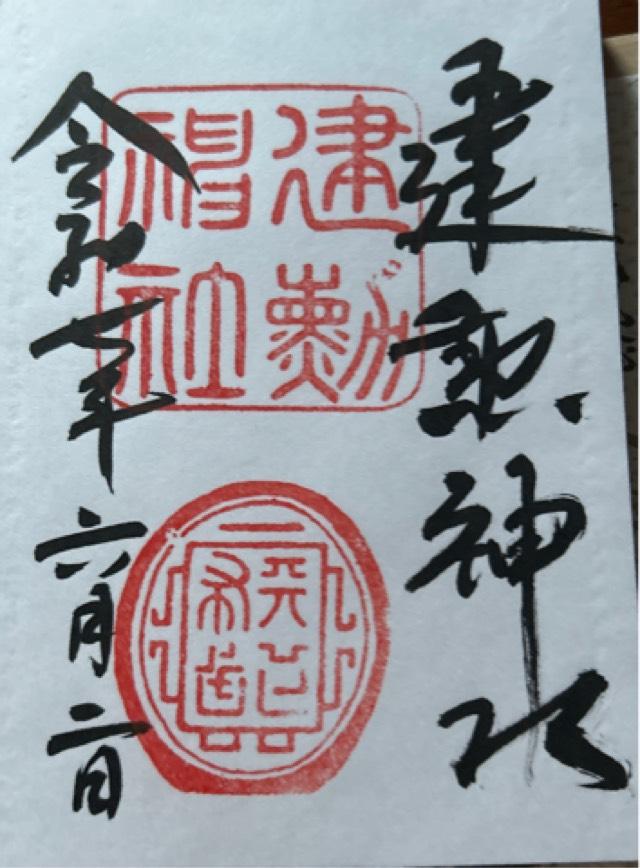 建勲神社
建勳
神社
天下
布武
令和七年六月二日